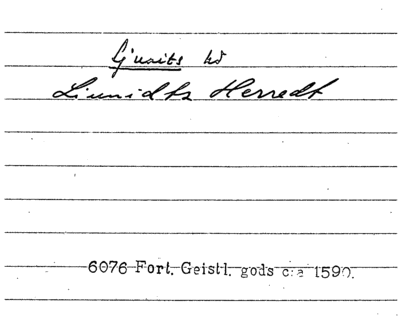 Gunits hd
Liunidtz Herredt
6076 Fort. Geistl. gods c:a 1590.